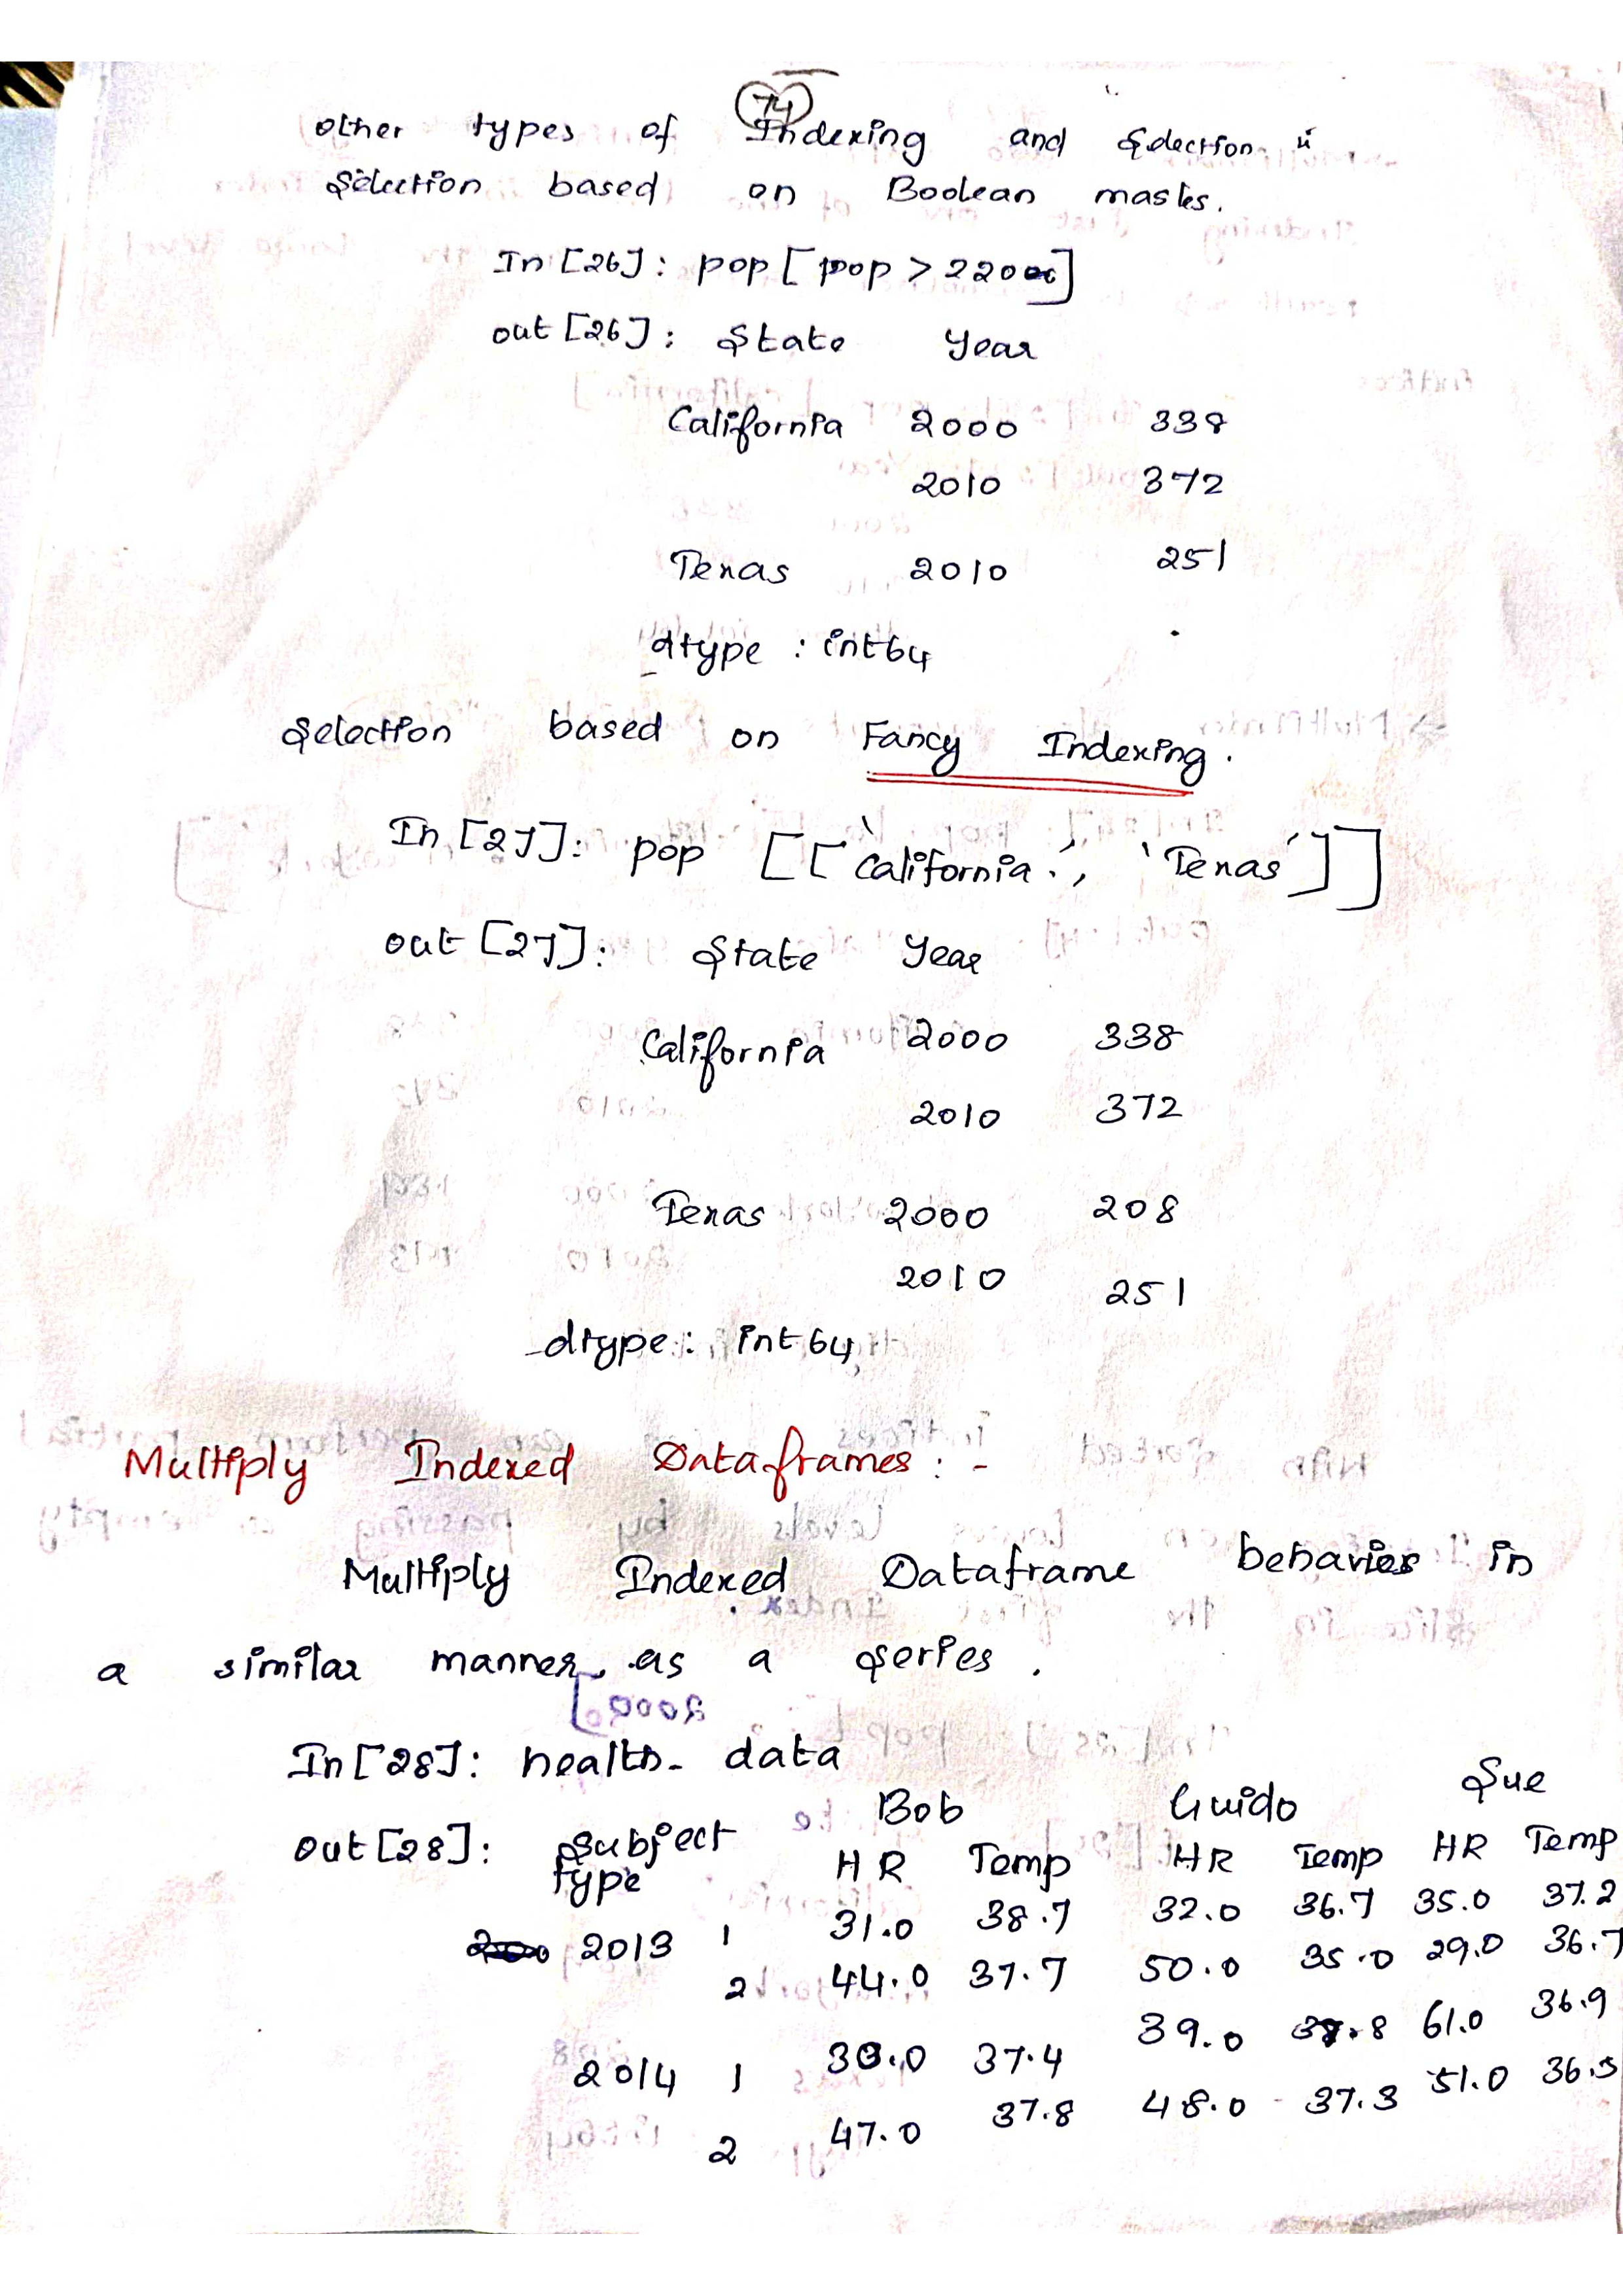 74
other types of Indexing and Selection is
Selection based on Boolean masks.
In [26]: pop [ pop > 22000]
out [26]: State Year
California 2000 338
2010 372
Texas 2010 251
dtype : int64
Selection based on Fancy Indexing.
In [27]: pop [['California', 'Texas']]
out [27]: State Year
California 2000 338
2010 372
Texas 2000 208
2010 251
dtype: int64
Multiply Indexed Dataframes: -
Multiply Indexed Dataframe behavies in
a similar manner as a series.
In [28]: health_ data
Bob Guido Sue
Out [28]: Subject HR Temp HR Temp HR Temp
type
2013 1 31.0 38.7 32.0 36.7 35.0 37.2
2 44.0 37.7 50.0 35.0 29.0 36.7
2014 1 30.0 37.4 39.0 61.0 36.9
2 47.0 37.8 48.0 37.3 51.0 36.5